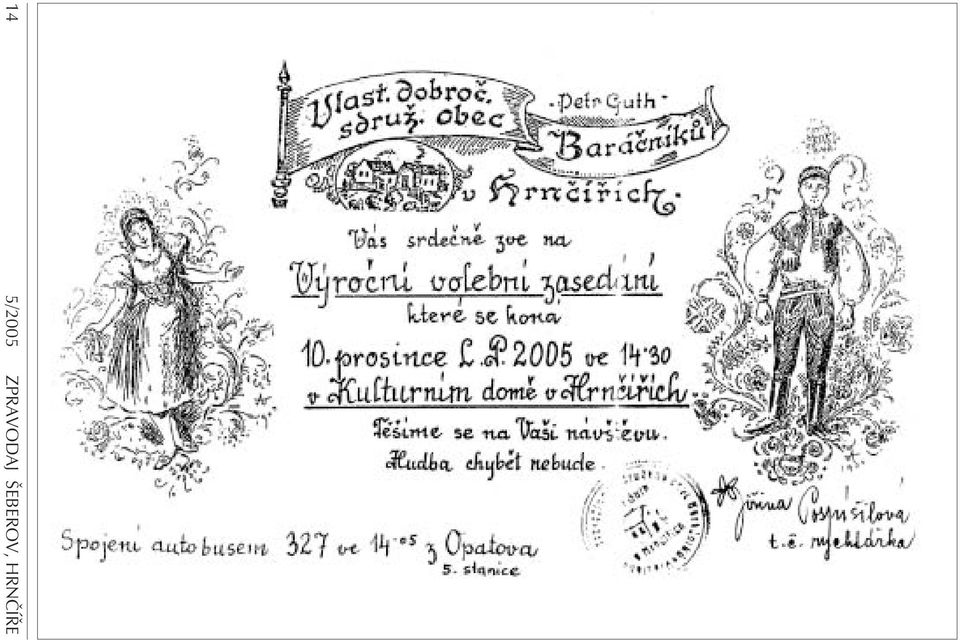 Vlast. dobroč.
sdruž. obec
-Petr Guth-
Baráčníků
v Hrnčířích.
Vás srdečně zve na
Výroční volební zasedání
které se koná
10. prosince L.P. 2005 ve 14·30
v Kulturním domě v Hrnčířích.
Těšíme se na Vaši návštěvu.
Hudba chybět nebude.
Jiřina Pospíšilová
t.č. rychtářka
Spojení autobusem 327 ve 14·05 z Opatova
5. stanice
14 5/2005 ZPRAVODAJ ŠEBEROV, HRNČÍŘE